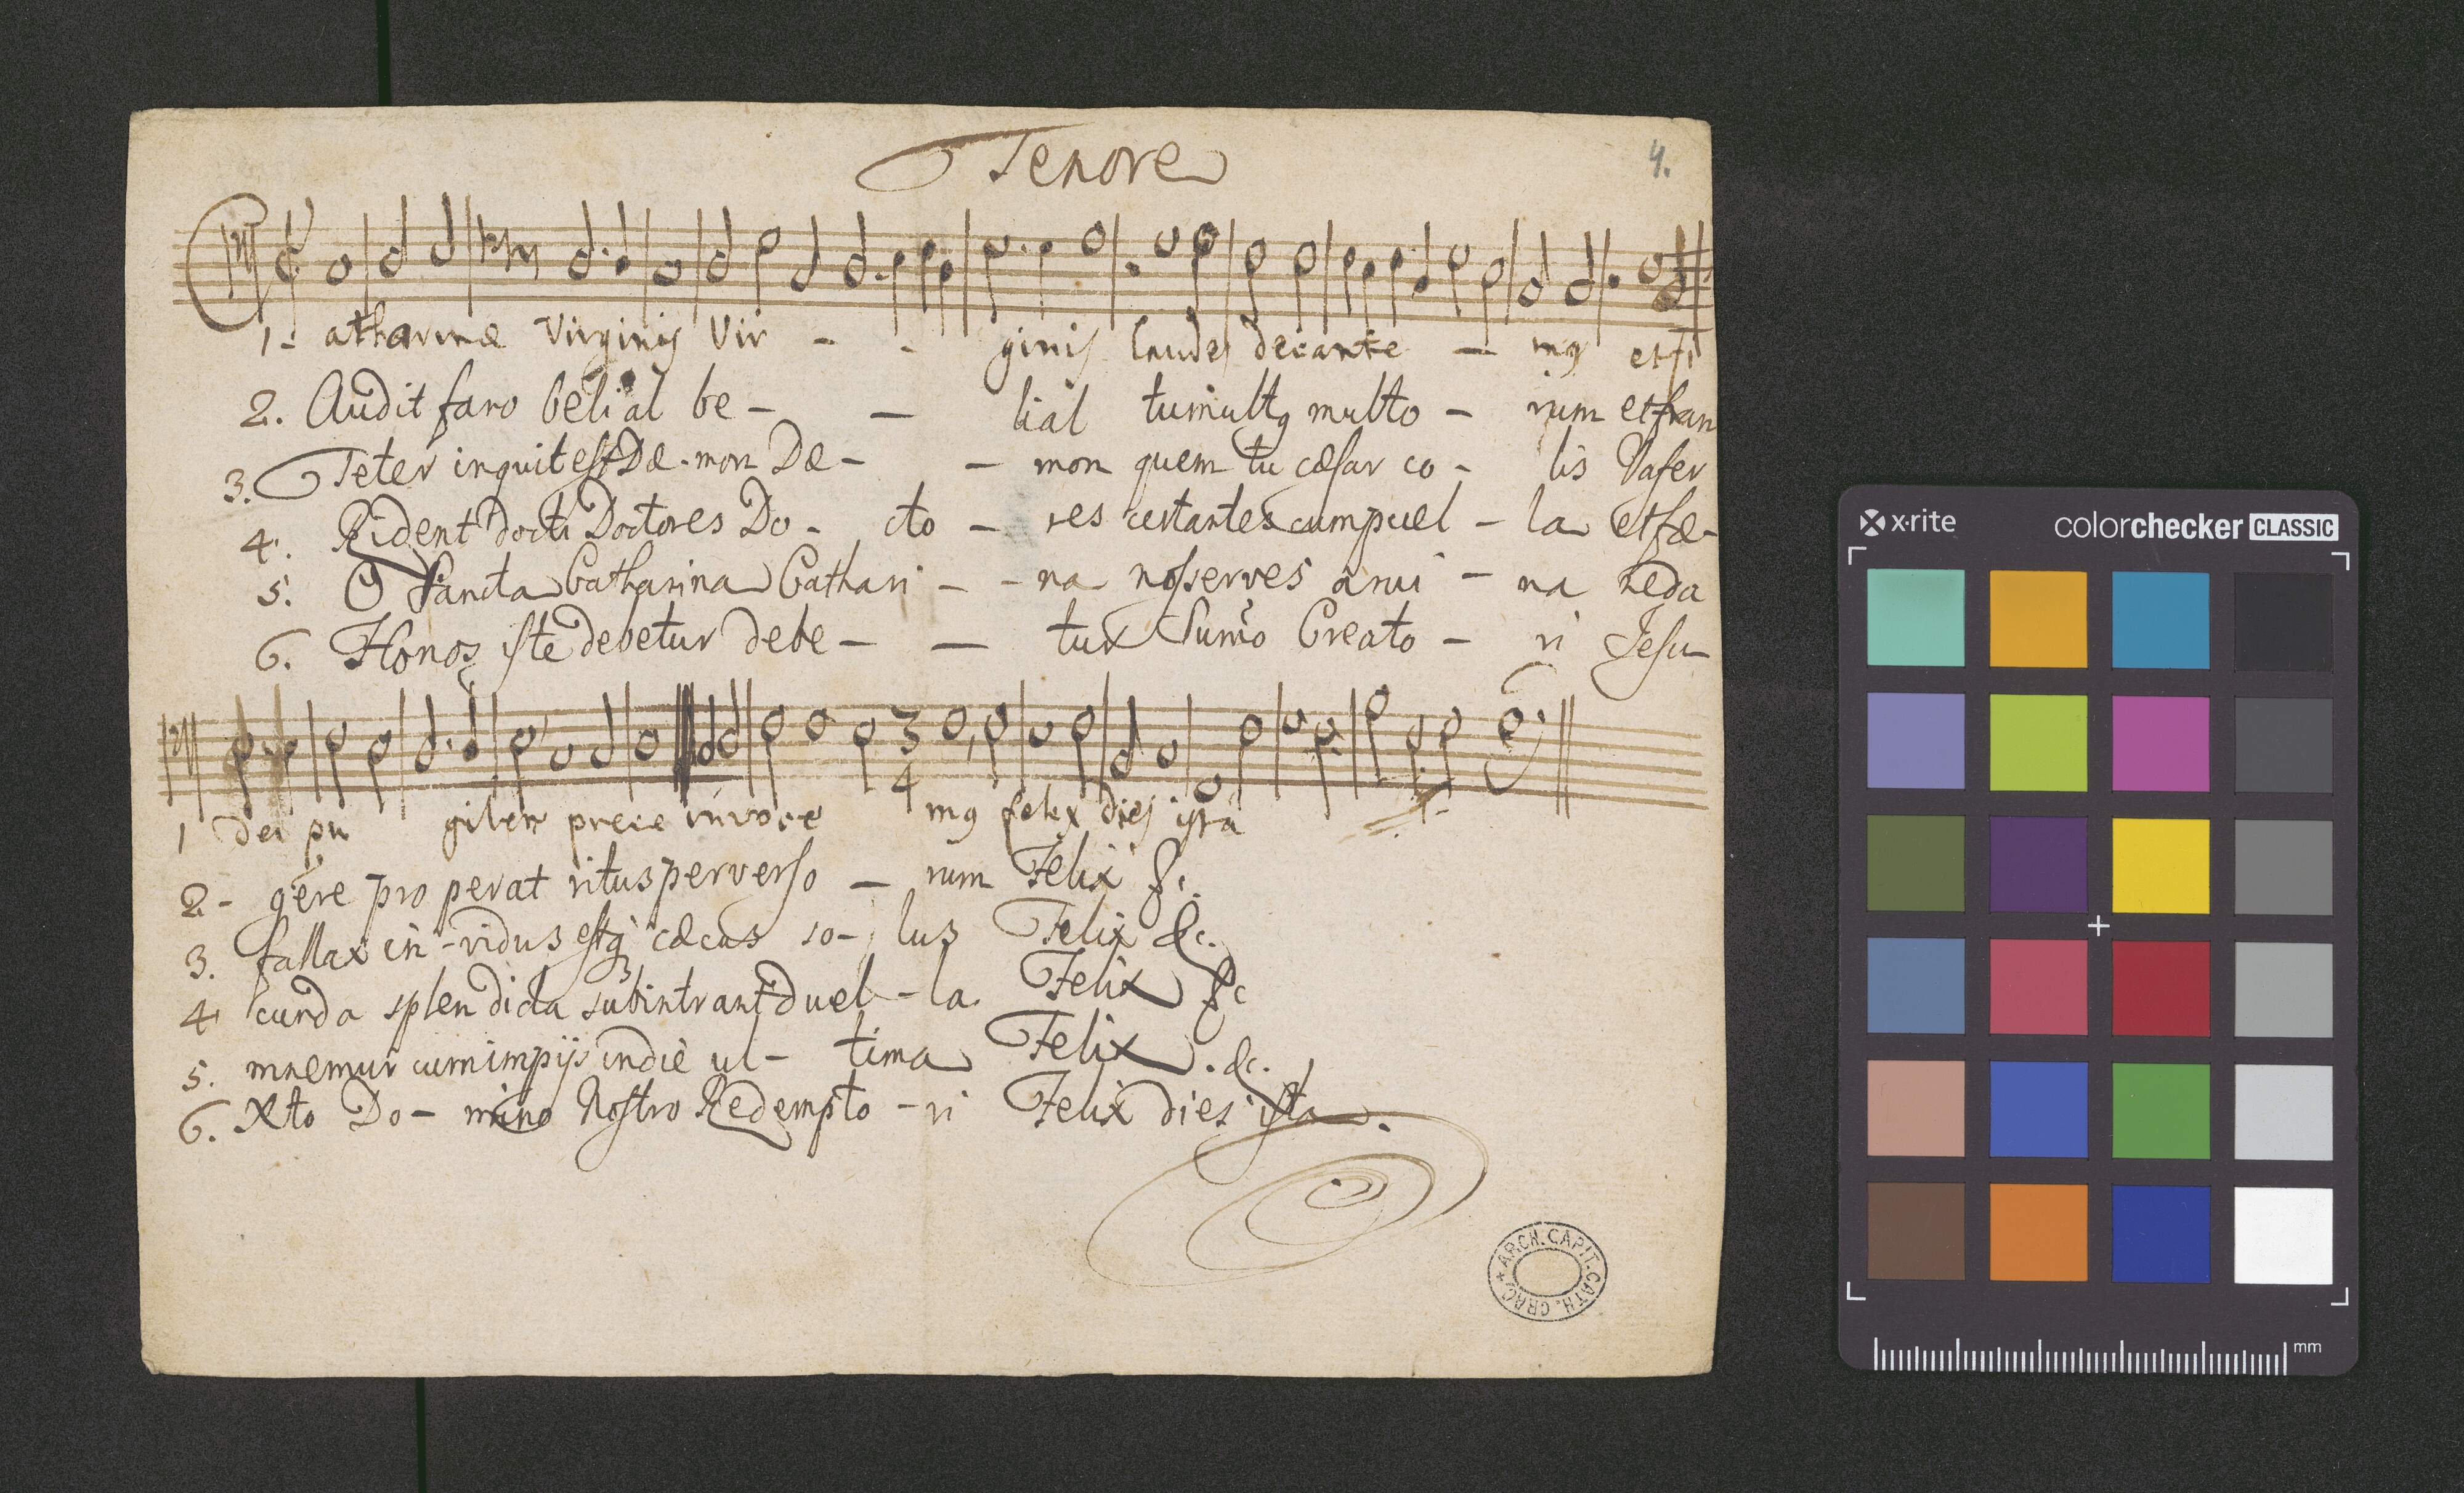 Tenore
4.
C
1- atharinæ Virginis Vir - - ginis laudes decante - mꝰ et fi
2. Audit faro belial be - - lial tumultꝰ multo - rum et fran
3. Teter inquit est Dæ-mon Dæ - - mon quem tu cæsar co - lis Vafer
4. Rident docti Doctores Do - cto - res certantes cum puel - la et fæ-
5. O Sancta Catharina Cathari - - na nos serves à rui - na ne da
6. Honos iste debetur debe - - tur Sum̃o Creato - ri Jesu-
3
4
1 dei pu gilem prece invoce mꝰ felix dies ista
2- gere pro perat ritus perverso - rum Felix &c.
3. fallax in-vidus estq; cæcus so- lus Felix &c.
4. cunda splen dida subintrant duel - la Felix &c
5. mnemur cum impijs in die ul - tima Felix . &c.
6. Xto Do - mino Nostro Redempto - ri Felix dies ista.
ARCH. CAPIT. CATH. CRAC.
x·rite colorchecker CLASSIC
mm